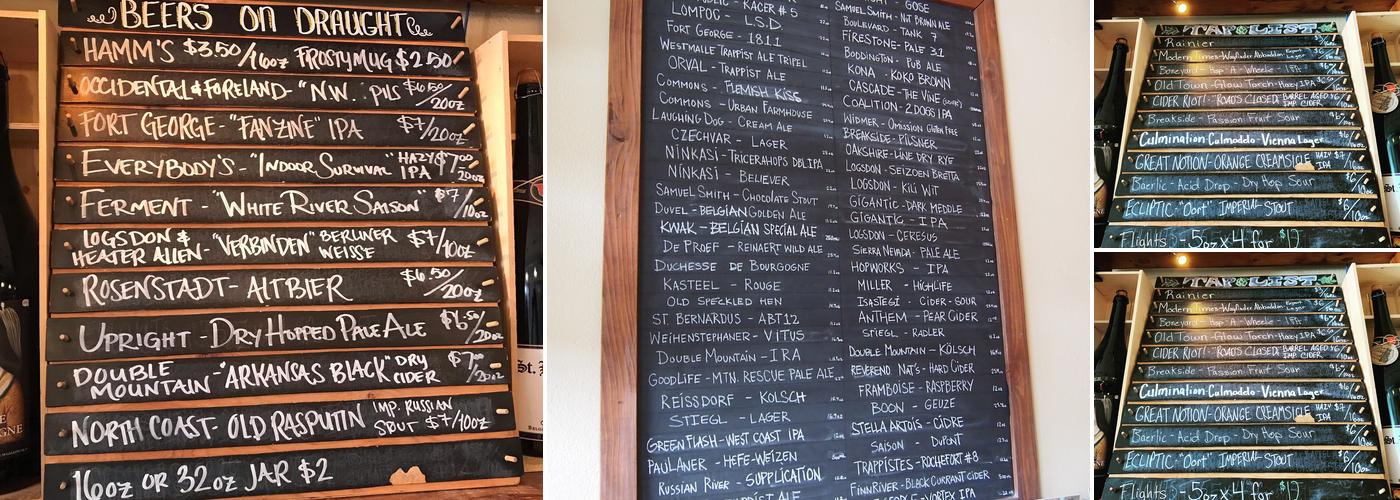 BEERS ON DRAUGHT
HAMM'S $3.50/16oz FROSTY MUG $2.50
OCCIDENTAL & FORELAND - "N.W." PILS $6.50/20oz
FORT GEORGE - "FANZINE" IPA $7/20oz
EVERYBODY'S - "INDOOR SURVIVAL" HAZY IPA $7.00/20oz
FERMENT - "WHITE RIVER SAISON" $7/10oz
LOGSDON & HEATER ALLEN - "VERBINDEN" BERLINER WEISSE $7/10oz
ROSENSTADT - ALTBIER $6.50/20oz
UPRIGHT - DRY HOPPED PALE ALE $6.50/20oz
DOUBLE MOUNTAIN - "ARKANSAS BLACK" DRY CIDER $7.00/20oz
NORTH COAST - OLD RASPUTIN IMP. RUSSIAN STOUT $7/10oz
16oz OR 32oz JAR $2
St.
GNE
RACER #5
LOMPOC - L.S.D.
FORT GEORGE - 1811
WESTMALLE TRAPPIST ALE TRIPEL
ORVAL - TRAPPIST ALE
COMMONS - FLEMISH KISS
COMMONS - URBAN FARMHOUSE
LAUGHING DOG - CREAM ALE
CZECHVAR - LAGER
NINKASI - TRICERAHOPS DBL IPA
NINKASI - BELIEVER
SAMUEL SMITH - CHOCOLATE STOUT
DUVEL - BELGIAN GOLDEN ALE
KWAK - BELGIAN SPECIAL ALE
DE PROEF - REINAERT WILD ALE
DUCHESSE DE BOURGOGNE
KASTEEL - ROUGE
OLD SPECKLED HEN
ST. BERNARDUS - ABT 12
WEIHENSTEPHANER - VITUS
DOUBLE MOUNTAIN - IRA
GOODLIFE - MTN. RESCUE PALE ALE
REISSDORF - KOLSCH
STIEGL - LAGER
GREEN FLASH - WEST COAST IPA
PAULANER - HEFE-WEIZEN
RUSSIAN RIVER - SUPPLICATION
GOSE
SAMUEL SMITH - NUT BROWN ALE
BOULEVARD - TANK 7
FIRESTONE - PALE 31
BODDINGTON - PUB ALE
KONA - KOKO BROWN
CASCADE - THE VINE
COALITION - 2 DOGS IPA
WIDMER - OMISSION GLUTEN FREE
BREAKSIDE - PILSNER
OAKSHIRE - LINE DRY RYE
LOGSDON - SEIZOEN BRETTA
LOGSDON - KILI WIT
GIGANTIC - DARK MEDDLE
GIGANTIC - IPA
LOGSDON - CERESUS
SIERRA NEVADA - PALE ALE
HOPWORKS - IPA
MILLER - HIGHLIFE
ISASTEGI - CIDER - SOUR
ANTHEM - PEAR CIDER
STIEGL - RADLER
DOUBLE MOUNTAIN - KÖLSCH
REVEREND NAT'S - HARD CIDER
FRAMBOISE - RASPBERRY
BOON - GEUZE
STELLA ARTOIS - CIDRE
SAISON - DUPONT
TRAPPISTES - ROCHEFORT #8
FINNRIVER - BLACK CURRANT CIDER
VORTEX IPA
TAP LIST
Rainier
Modern Times - Wayfinder
Boneyard - Hop - A - Wheelie - IPA
Old Town - Glow Torch - Hazy IPA
CIDER RIOT! - "ROADS CLOSED" BARREL AGED IMP. CIDER
Breakside - Passion Fruit Sour
Culmination - Colmoddo - Vienna Lager
GREAT NOTION - ORANGE CREAMSICLE HAZY IPA
Baerlic - Acid Drop - Dry Hop Sour
ECLIPTIC - "Oort" IMPERIAL STOUT $6/10oz
Flights - 5oz x 4 for $12
TAP LIST
Rainier
Modern Times - Wayfinder
Boneyard - Hop - A - Wheelie - IPA
Old Town - Glow Torch - Hazy IPA
CIDER RIOT! - "ROADS CLOSED" BARREL AGED IMP. CIDER
Breakside - Passion Fruit Sour
Culmination - Colmoddo - Vienna Lager
GREAT NOTION - ORANGE CREAMSICLE HAZY IPA
Baerlic - Acid Drop - Dry Hop Sour
ECLIPTIC - "Oort" IMPERIAL STOUT $6/10oz
Flights - 5oz x 4 for $12